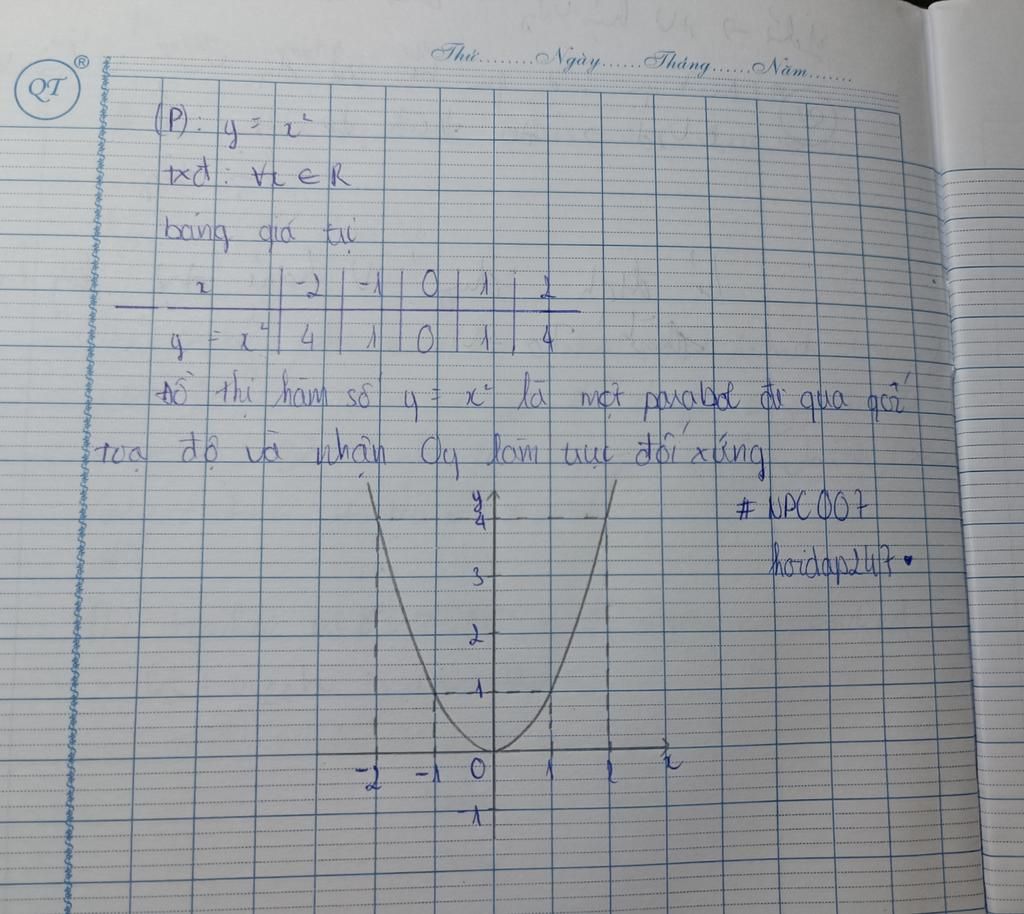 QT ®
Thứ.........Ngày......Tháng......Năm.......
(P): y = x²
txđ: ∀x ∈ R
bảng giá trị
x | -2 | -1 | 0 | 1 | 2
y = x² | 4 | 1 | 0 | 1 | 4
Đồ thị hàm số y = x² là một parabol đi qua gốc
toạ độ và nhận Oy làm trục đối xứng
# NPC007
hoidap247.
y
4
3
2
1
-2 -1 0 1 2 x
-1